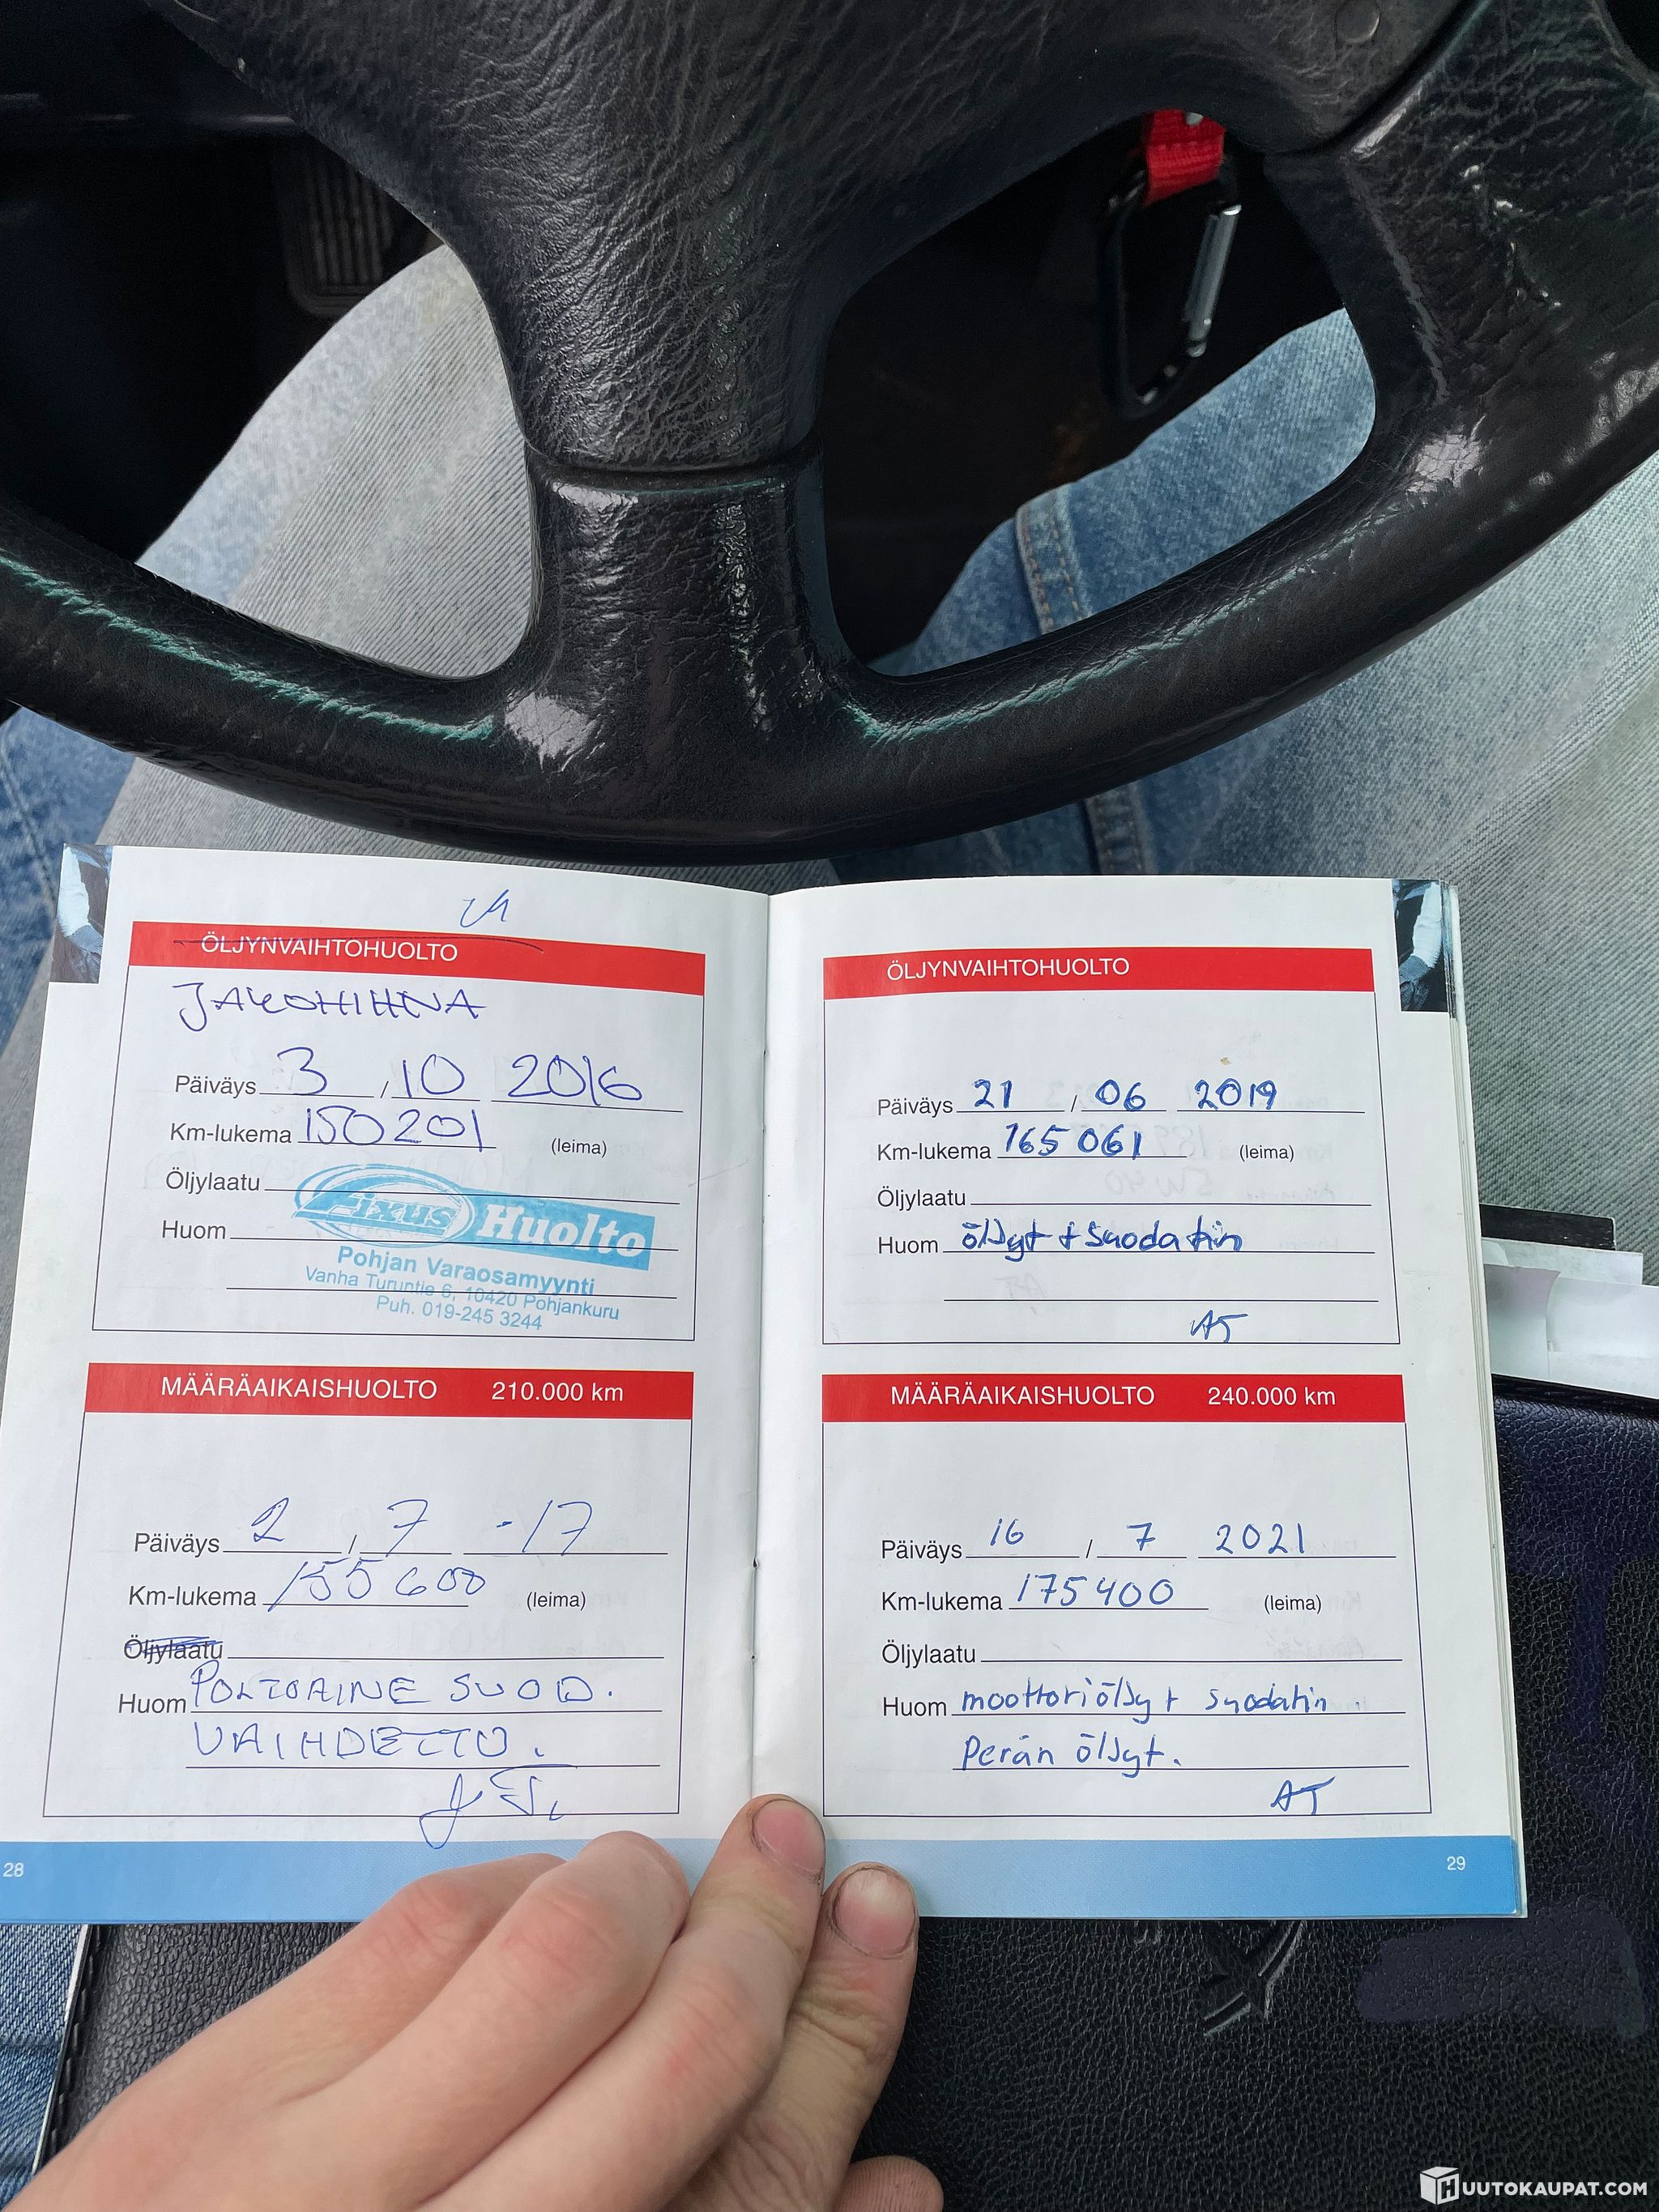 ÖLJYNVAIHTOHUOLTO
JAKOHIHNA
Päiväys 3 / 10 2016
Km-lukema 150201 (leima)
Öljylaatu
Huom
Fixus Huolto
Pohjan Varaosamyynti
Vanha Turuntie 6, 10420 Pohjankuru
Puh. 019-245 3244
MÄÄRÄAIKAISHUOLTO 210.000 km
Päiväys 2 / 7 -17
Km-lukema 155600 (leima)
Öljylaatu
Huom POLTOAINE SUOD.
VAIHDETTU.
28
ÖLJYNVAIHTOHUOLTO
Päiväys 21 / 06 2019
Km-lukema 165 061 (leima)
Öljylaatu
Huom öljyt + suodatin
AT
MÄÄRÄAIKAISHUOLTO 240.000 km
Päiväys 16 / 7 2021
Km-lukema 175400 (leima)
Öljylaatu
Huom moottoriöljyt suodatin
Perän öljyt.
AT
29
HUUTOKAUPAT.COM